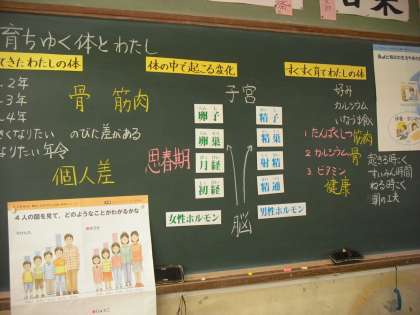 育ちゆく体とわたし
てきたわたしの体
2年
3年
4年
くなりたい
なりたい年令
骨 筋肉
のびた差がある
個人差
4人の図を見て、どのようなことがわかるかな
体の中で起こる変化
子宮
思春期
卵子
卵巣
月経
初経
女性ホルモン
精子
精巣
射精
精通
男性ホルモン
脳
すくすく育てわたしの体
好み
カルシウム
1.たんぱくしつ 筋肉
2.カルシウム 骨
3.ビタミン 健康
起きる時こく
すいみん時間
ねる時こく